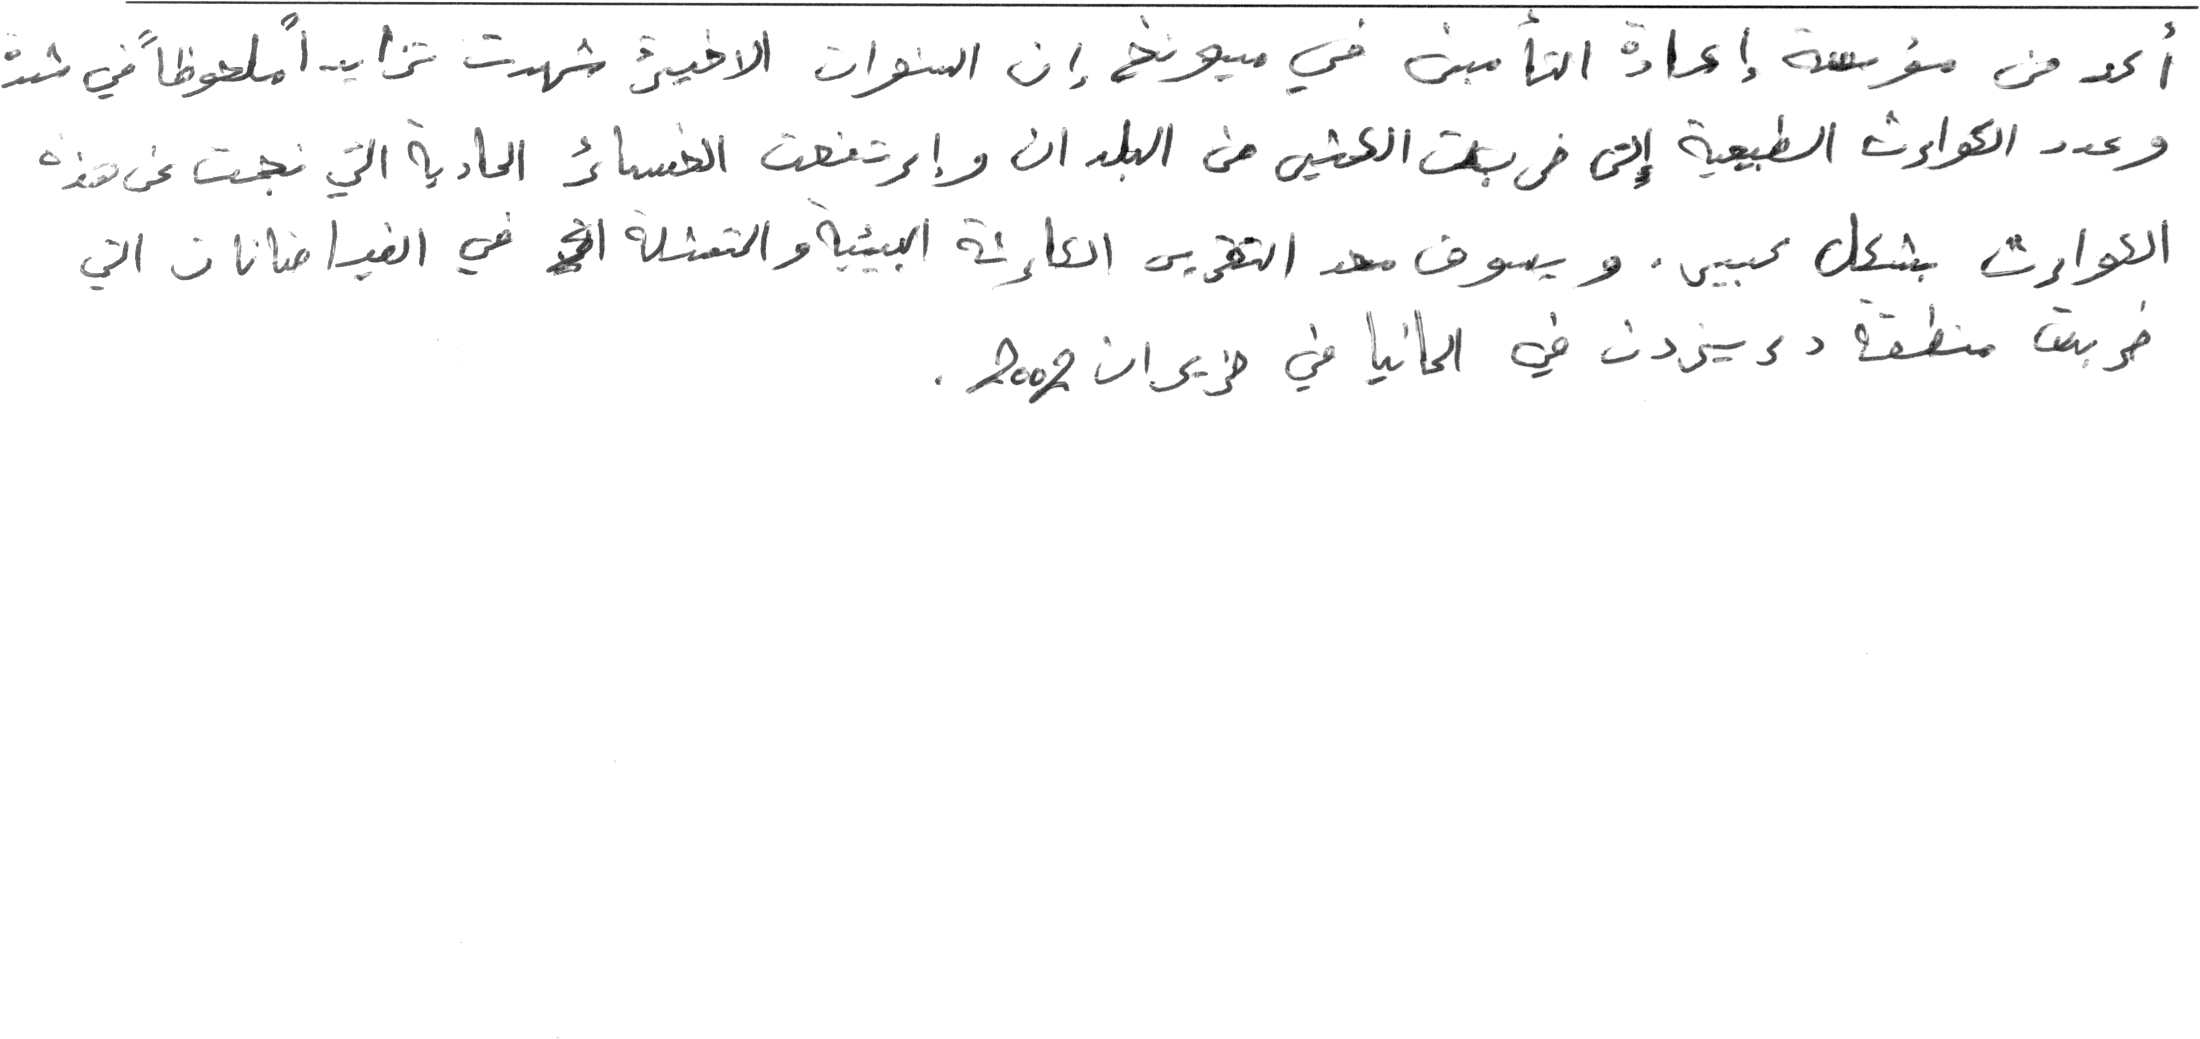 أعد من مؤسسة إعادة التأمين في ميونخ إن السنوات الاخيرة شهدت تزايداً ملحوظاً في شدة
وعدد الكوارث الطبيعية إلتى ضربت الكثير من البلدان وإرتفعت الخسائر المادية التي نجمت عن هذه
الكوارث بشكل كبير. ويسوف معد التقرير الكارثة البيئية والتمثلة في الفيداضانات التي
ضربت منطقة دريزدن في المانيا في حزيران 2002.